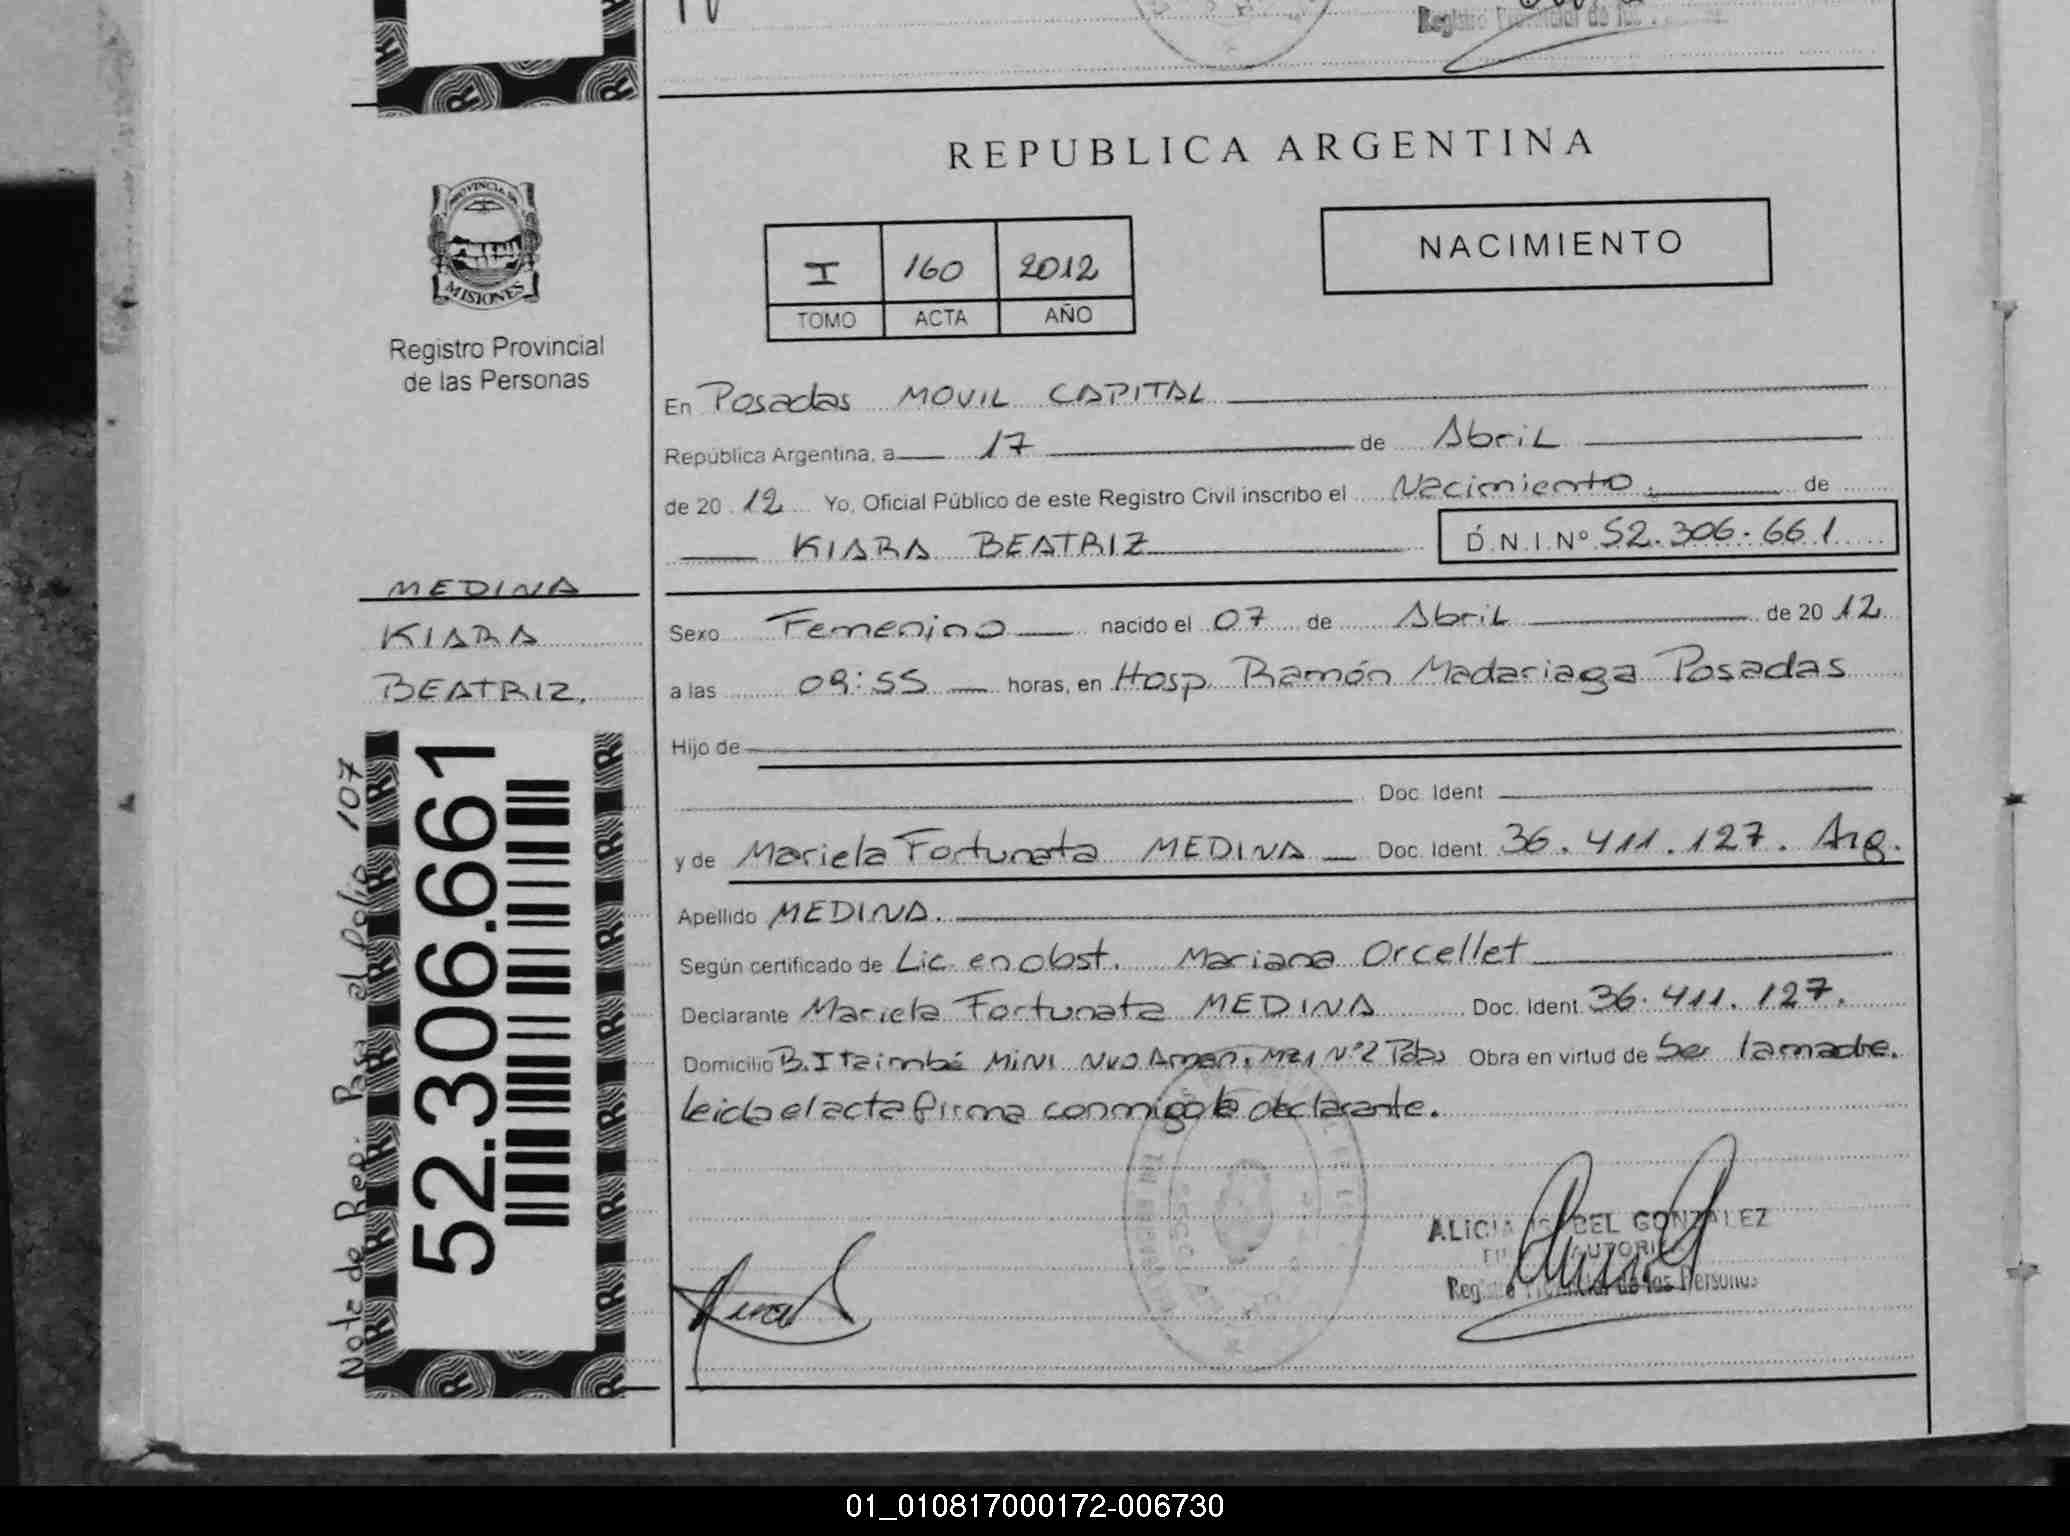 Registro Provincial de las
REPUBLICA ARGENTINA
PROVINCIA DE
MISIONES
Registro Provincial
de las Personas
I 160 2012
TOMO ACTA AÑO
NACIMIENTO
En Posadas MOVIL CAPITAL
República Argentina, a 17 de Abril
de 20 12 Yo, Oficial Público de este Registro Civil inscribo el Nacimiento de
KIARA BEATRIZ D.N.I.Nº 52.306.661
MEDINA
KIARA
BEATRIZ.
Sexo Femenino nacido el 07 de Abril de 20 12
a las 09:55 horas, en Hosp. Ramón Madariaga Posadas
Hijo de
Doc. Ident
y de Mariela Fortunata MEDINA Doc. Ident. 36.411.127. Arg.
Apellido MEDINA.
Según certificado de Lic. en obst. Mariana Orcellet
Declarante Mariela Fortunata MEDINA Doc. Ident. 36.411.127.
Domicilio B. Itaimbé MINI Nvo Nº2 Pdas Obra en virtud de Ser la madre.
leida el acta firma conmigo la declarante.
Nota de Rep. Pasa al folio 107
52.306.661
ALICIA ISABEL GONZALEZ
Registro Provincial de las Personas
01_010817000172-006730